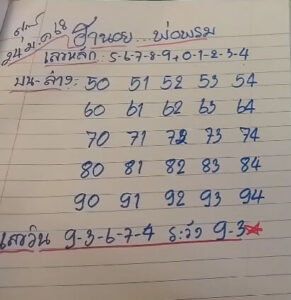 24 ม.ค 68 ฮานอย...พ่อพรม
เลขหลัก: 5-6-7-8-9+0-1-2-3-4
บน-ล่าง: 50 51 52 53 54
60 61 62 63 64
70 71 72 73 74
80 81 82 83 84
90 91 92 93 94
เลขวิน 9-3-6-7-4 ระวัง 9-3